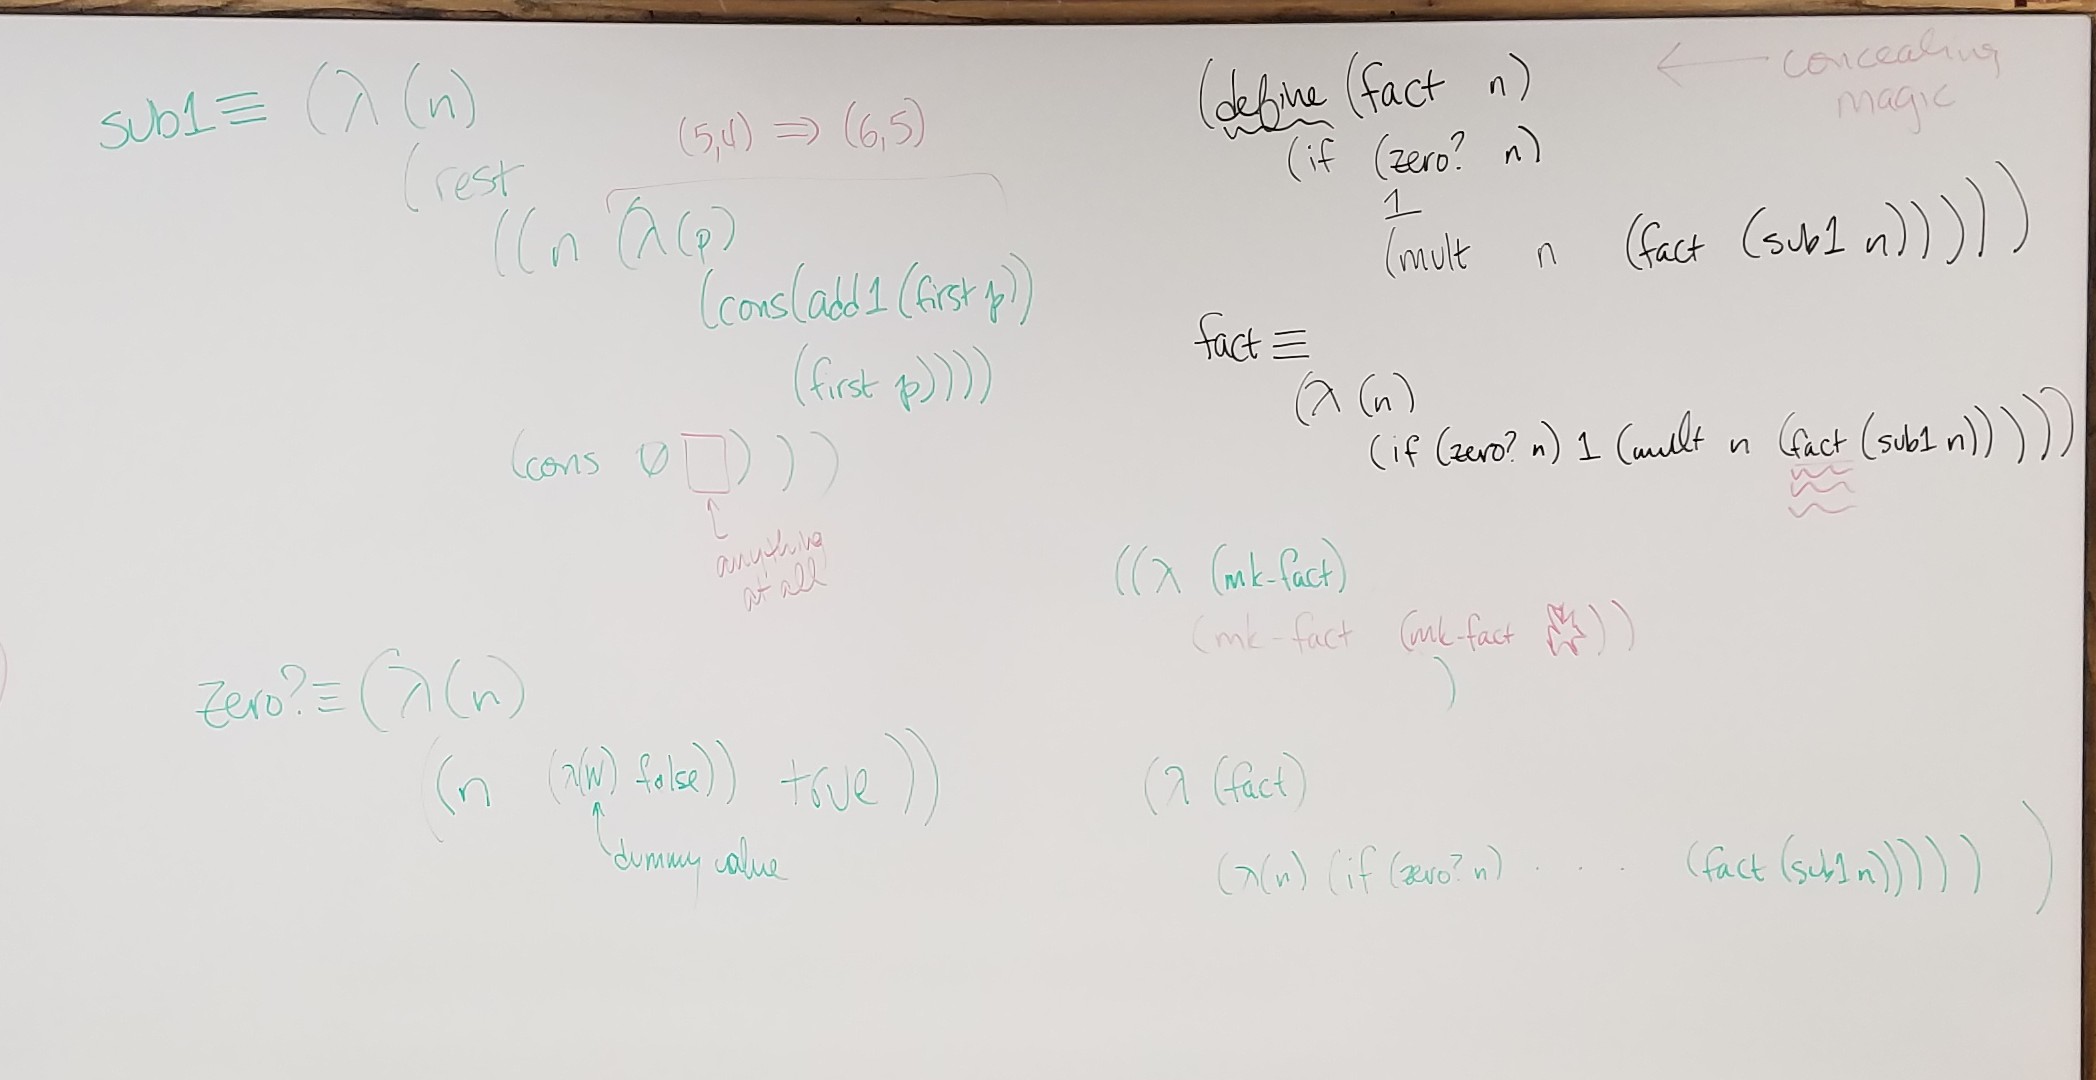 sub1 ≡ (λ (n)
(rest
(5,4) ⇒ (6,5)
((n (λ(p)
(cons(add1 (first p))
(first p))))
(cons 0 □) ) )
anything
at all
zero? ≡ (λ(n)
(n (λ(w) false)) true ))
dummy value
(define (fact n)
← concealing
magic
(if (zero? n)
1
(mult n (fact (sub1 n))))))
fact ≡
(λ (n)
(if (zero? n) 1 (mult n (fact (sub1 n))))))
((λ (mk-fact)
(mk-fact (mk-fact ))
)
(λ (fact)
(λ(n) (if (zero? n) . . . (fact (sub1 n))))) )